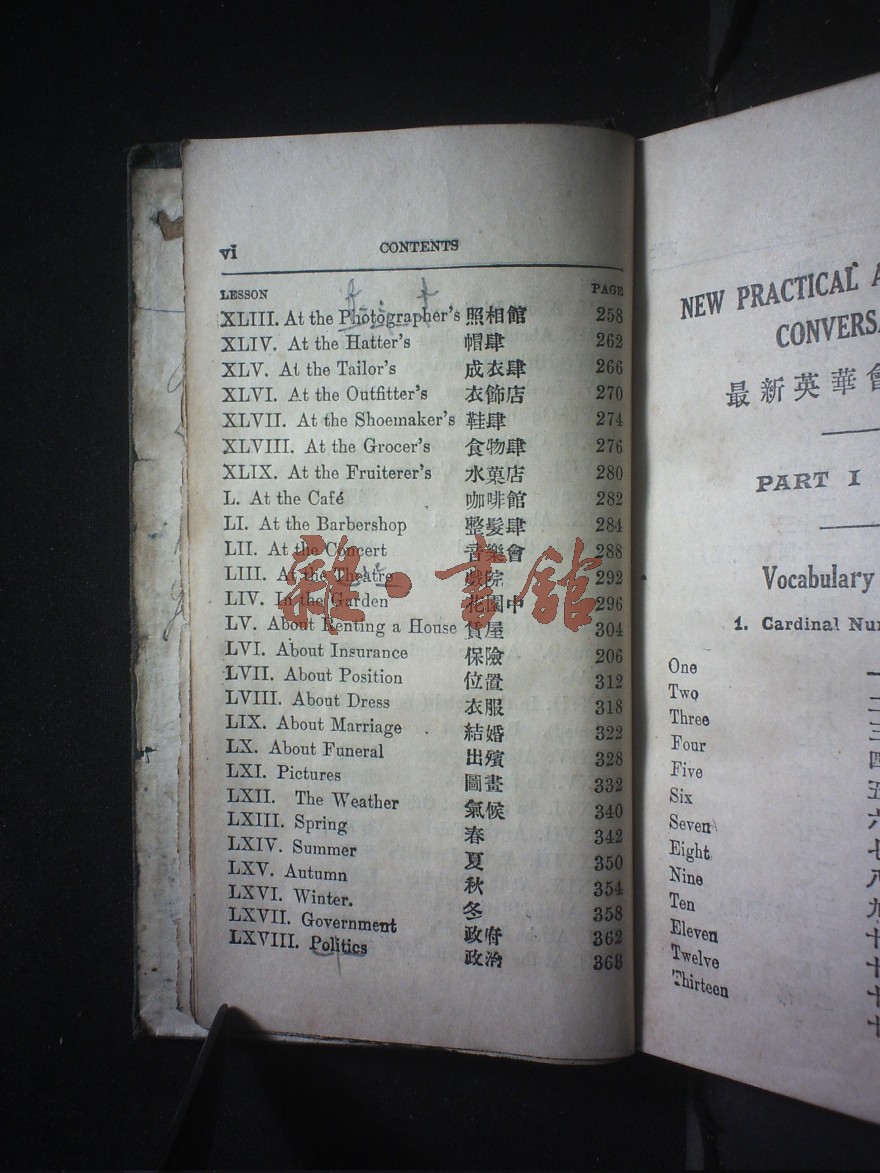 vi CONTENTS
LESSON PAGE
XLIII. At the Photographer's 照相館 258
XLIV. At the Hatter's 帽肆 262
XLV. At the Tailor's 成衣肆 266
XLVI. At the Outfitter's 衣飾店 270
XLVII. At the Shoemaker's 鞋肆 274
XLVIII. At the Grocer's 食物肆 276
XLIX. At the Fruiterer's 水菓店 280
L. At the Café 咖啡館 282
LI. At the Barbershop 整髮肆 284
LII. At the Concert 音樂會 288
LIII. At the Theatre 戲院 292
LIV. In the Garden 花園中 296
LV. About Renting a House 賃屋 304
LVI. About Insurance 保險 206
LVII. About Position 位置 312
LVIII. About Dress 衣服 318
LIX. About Marriage 結婚 322
LX. About Funeral 出殯 328
LXI. Pictures 圖畫 332
LXII. The Weather 氣候 340
LXIII. Spring 春 342
LXIV. Summer 夏 350
LXV. Autumn 秋 354
LXVI. Winter. 冬 358
LXVII. Government 政府 362
LXVIII. Politics 政治 368
雜·書館
NEW PRACTICAL
CONVERSA
最新英華會
PART I
Vocabulary
1. Cardinal Nu
One 一
Two 二
Three 三
Four 四
Five 五
Six 六
Seven 七
Eight 八
Nine 九
Ten 十
Eleven 十
Twelve 十
Thirteen 十